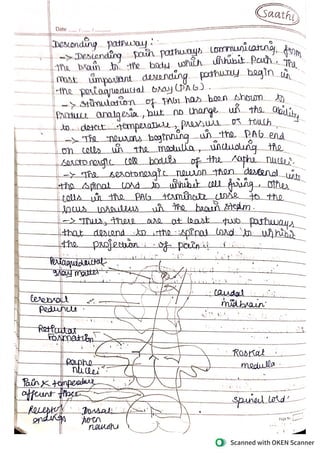 Saathi
Date
Descending pathway :
-> Descending pain pathways communicating from
the brain to the body which inhibit pain. The
most important descending pathway begin in
the periaqueductal gray (PAG).
-> Stimulation of PAG has been shown to
produce analgesia, but no change in the ability
to detect temperature, pressure or touch.
-> The neurons beginning in the PAG end
on cells in the medulla, including the
serotonergic cell bodies of the raphe nuclei.
-> The serotonergic neuron then descend into
the spinal cord to inhibit cell firing. Other
cells in the PAG terminate close to the
locus in the brain stem.
-> Thus, there are at least two pathways
that descend to the spinal cord to inhibit
the projection of pain.
Periaqueductal
gray matter
Cerebral
Peduncle
caudal
midbrain
Reticular
Formation
Rostral
medulla
Raphe
nuclei
Pain & temperature
afferent fibres
spinal cord
Receptor
endings
Dorsal
horn
neuron
Scanned with OKEN Scanner